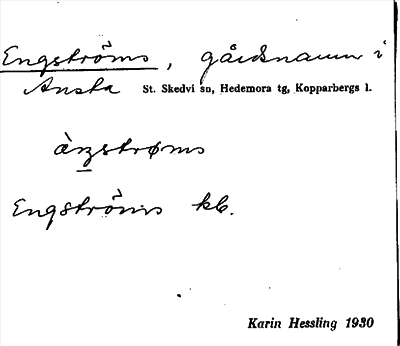 Engströms, gårdsnamn i
Ansta St. Skedvi sn, Hedemora tg, Kopparbergs l.
ängstrøms
Engströms kb.
Karin Hessling 1930